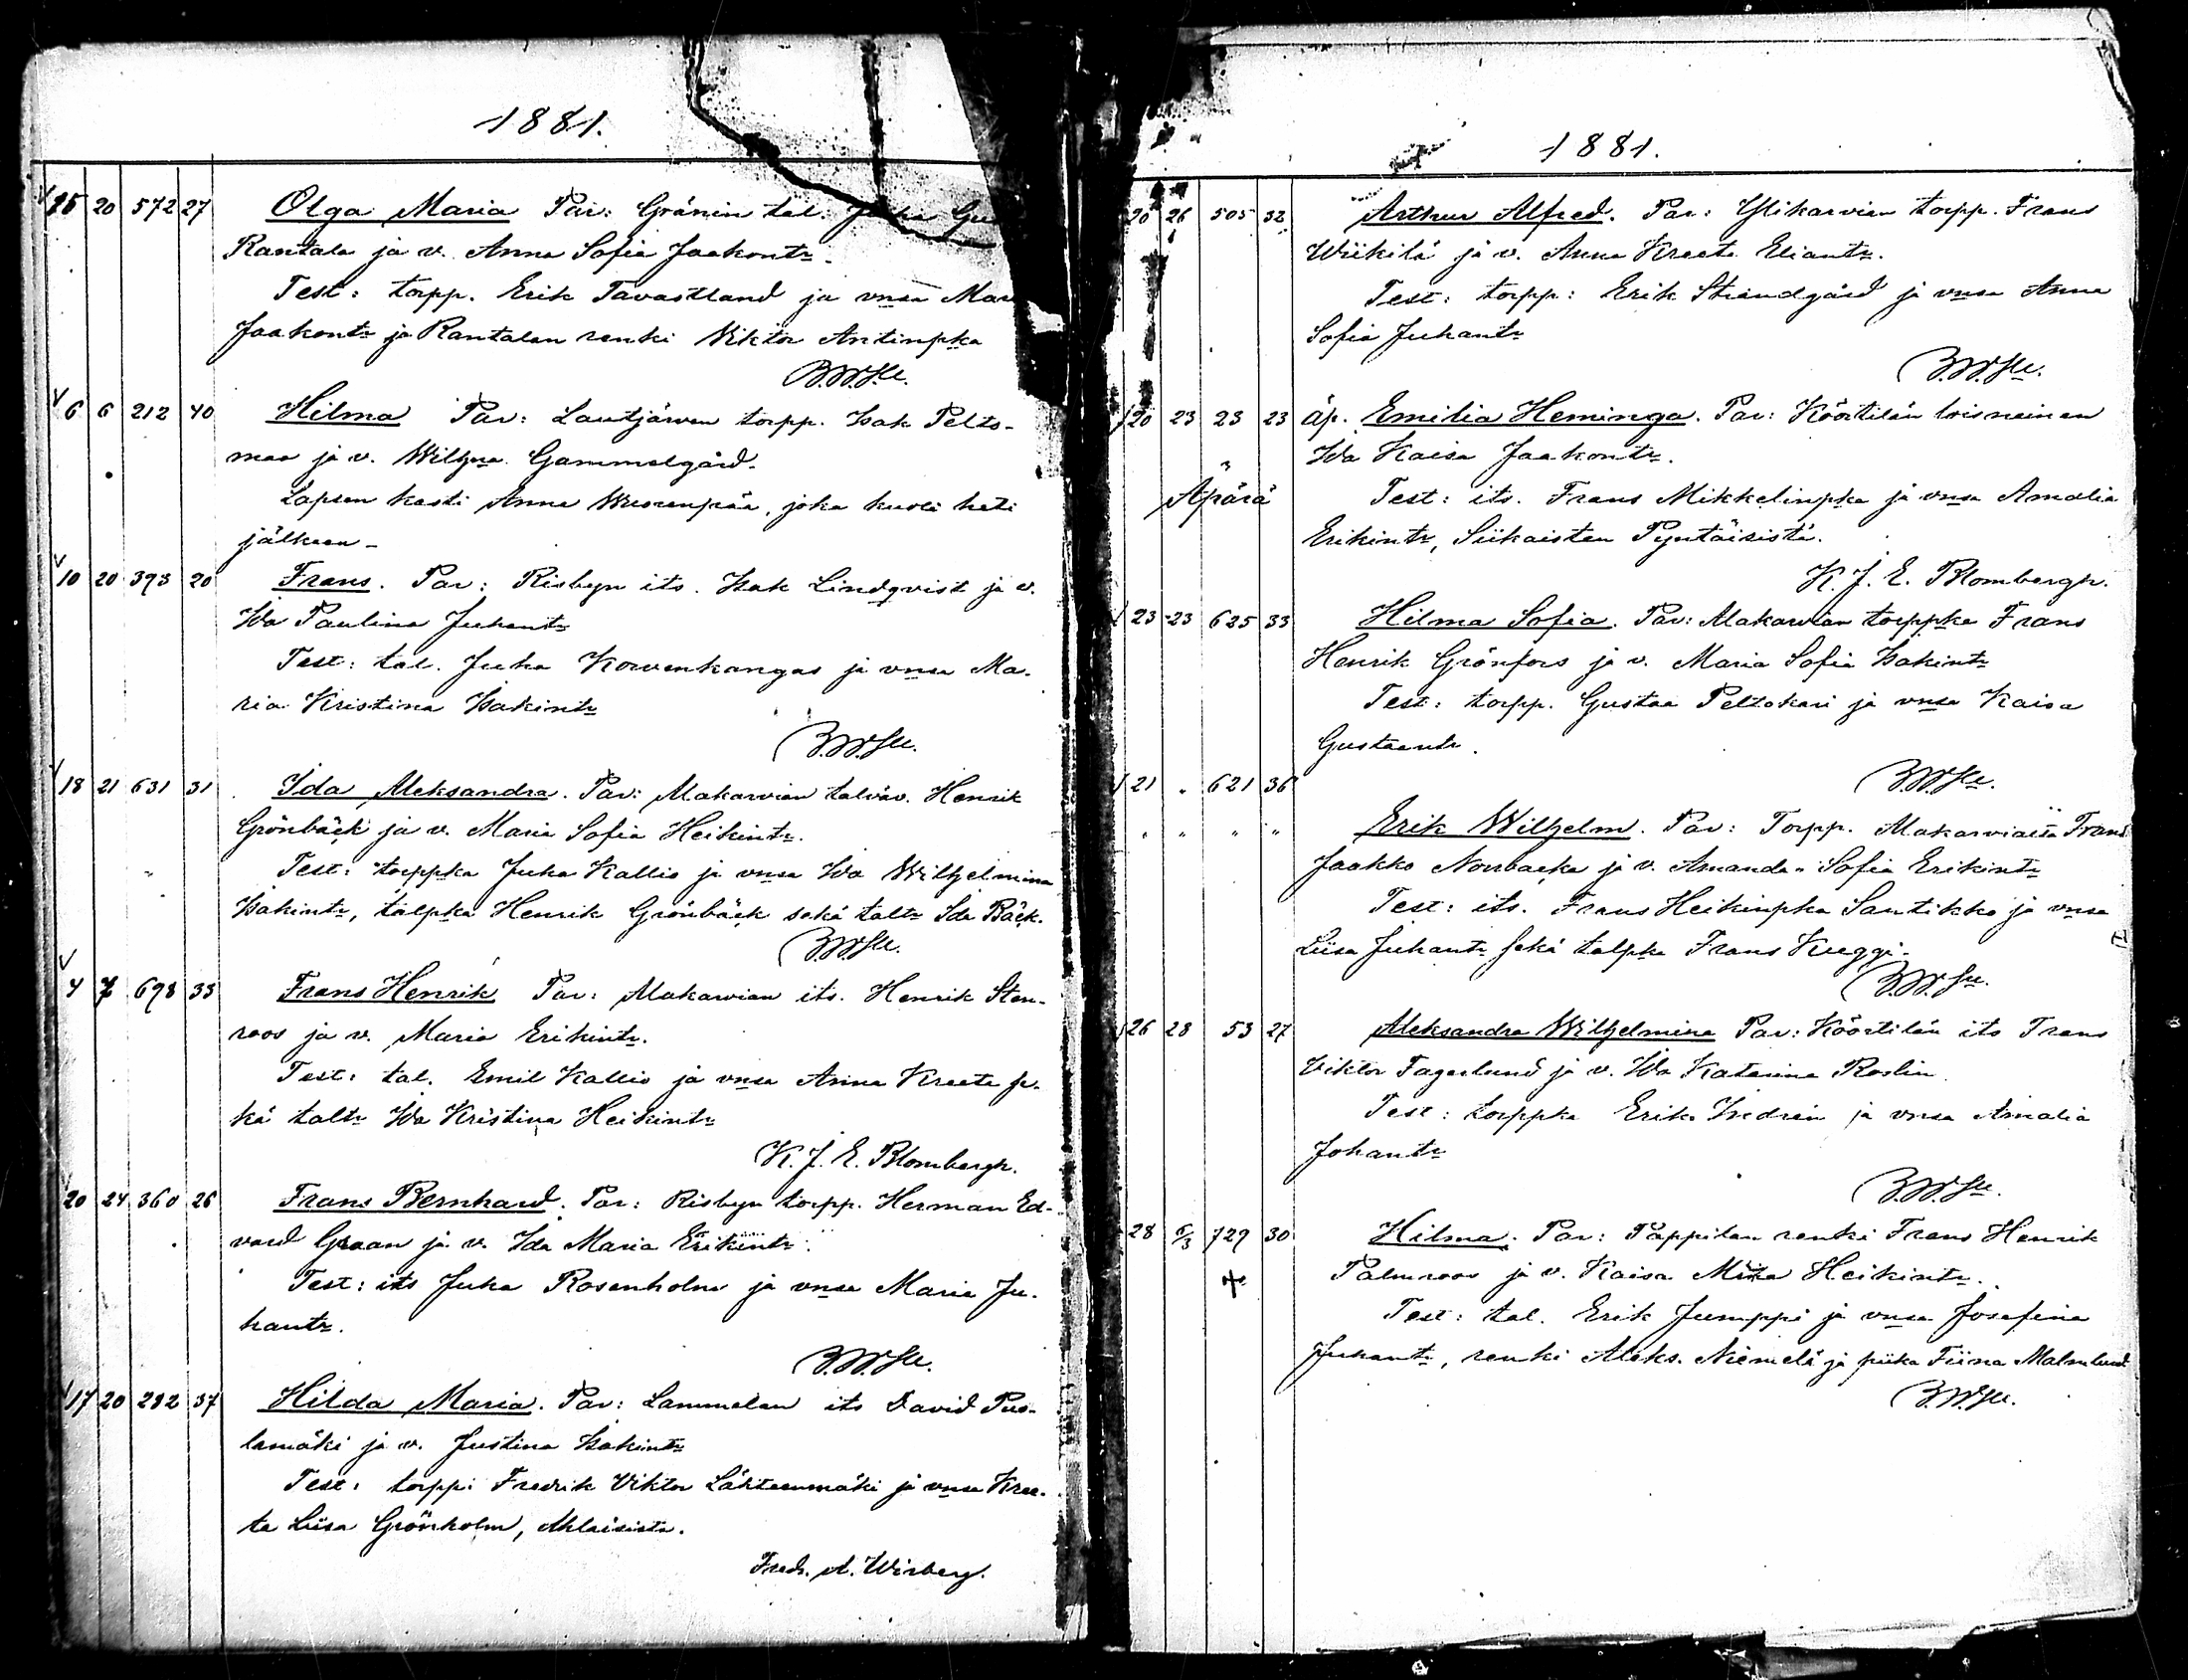 1881.
15 20 572 27 Olga Maria Par: Gränin tal: Juha
Rantala ja v. Anna Sofia Jaakontr.
Test: torpp. Erik Tavastland ja vnsa
Jaakontr ja Rantalan renki Viktor Antinpka
6 6 212 40 Hilma Par: Lautjärven torpp. Isak Pelto-
maa ja v. Wilhna. Gammelgård.
Lapsen kasti Anna Wuorenpää, joka kuoli heti
jälkeen -
10 20 393 20 Frans. Par: Risbyn its. Isak Lindqvist ja v.
Ida Paulina Juhantr
Test: tal. Juha Korvenkangas ja vnsa Ma-
ria Kristina Isakintr
18 21 631 31 Ida Aleksandra. Par: Makarvian talväv. Henrik
Grönbäck ja v. Maria Sofia Heikintr.
" Test: torppka Juha Kallio ja vnsa Ida Wilhelmina
Isakintr, talpka Henrik Grönbäck sekä taltr Ida Bäck.
4 7 698 33 Frans Henrik Par: Makarvian its. Henrik Sten-
roos ja v. Maria Erikintr.
Test: tal. Emil Kallio ja vnsa Anna Kreeta se-
kä taltr Ida Kristina Heikintr
K. J. E. Blombergh.
20 24 360 26 Frans Bernhard. Par: Risbyn torpp. Herman Ed-
vard Graan ja v. Ida Maria Erikintr.
Test: its Juha Rosenholm ja vnsa Maria Ju-
hantr.
17 20 282 37 Hilda Maria. Par: Lammelan its David Puo-
lamäki ja v. Justina Isakintr
Test: torpp: Fredrik Viktor Lähteenmäki ja vnsa Kree-
ta Liisa Grönholm, Ahlaisista.
Fredr. A. Wirberg.
1881.
20 26 505 32 Arthur Alfred. Par: Ylikarvian torpp. Frans
Wiikilä ja v. Anna Kreeta Eliantr.
Test: torpp: Erik Strandgård ja vnsa Anna
Sofia Juhantr
20 23 23 23 äp. Emilia Heminga. Par: Köörtilän loisnainen
" Ida Kaisa Jaakontr.
Äpärä Test: its. Frans Mikkelinpka ja vnsa Amalia
Erikintr, Siikaisten Pyntäisistä.
K. J. E. Blombergh.
23 23 625 33 Hilma Sofia. Par: Makarvian torppka Frans
Henrik Grönfors ja v. Maria Sofia Isakintr
Test: torpp. Gustaa Peltokari ja vnsa Kaisa
Gustaantr.
21 " 621 36
" " " " Erik Wilhelm. Par: Torpp. Makarviasta Frans
Jaakko Norrbacka ja v. Amanda Sofia Erikintr
Test: its. Frans Heikinpka Santikko ja vnsa
Liisa Juhantr sekä talpka Frans Kuggi.
26 28 53 27 Aleksandra Wilhelmina Par: Köörtilän its Frans
Viktor Fagerlund ja v. Ida Katarina Roslin
Test: torppka Erik Isedrein ja vnsa Amalia
Johantr
28 6/3 729 30 Hilma. Par: Pappilan renki Frans Henrik
Palmroos ja v. Kaisa Miina Heikintr.
Test: tal. Erik Jumppi ja vnsa Josefina
Juhantr, renki Aleks. Niemelä ja piika Fiina Malmlund